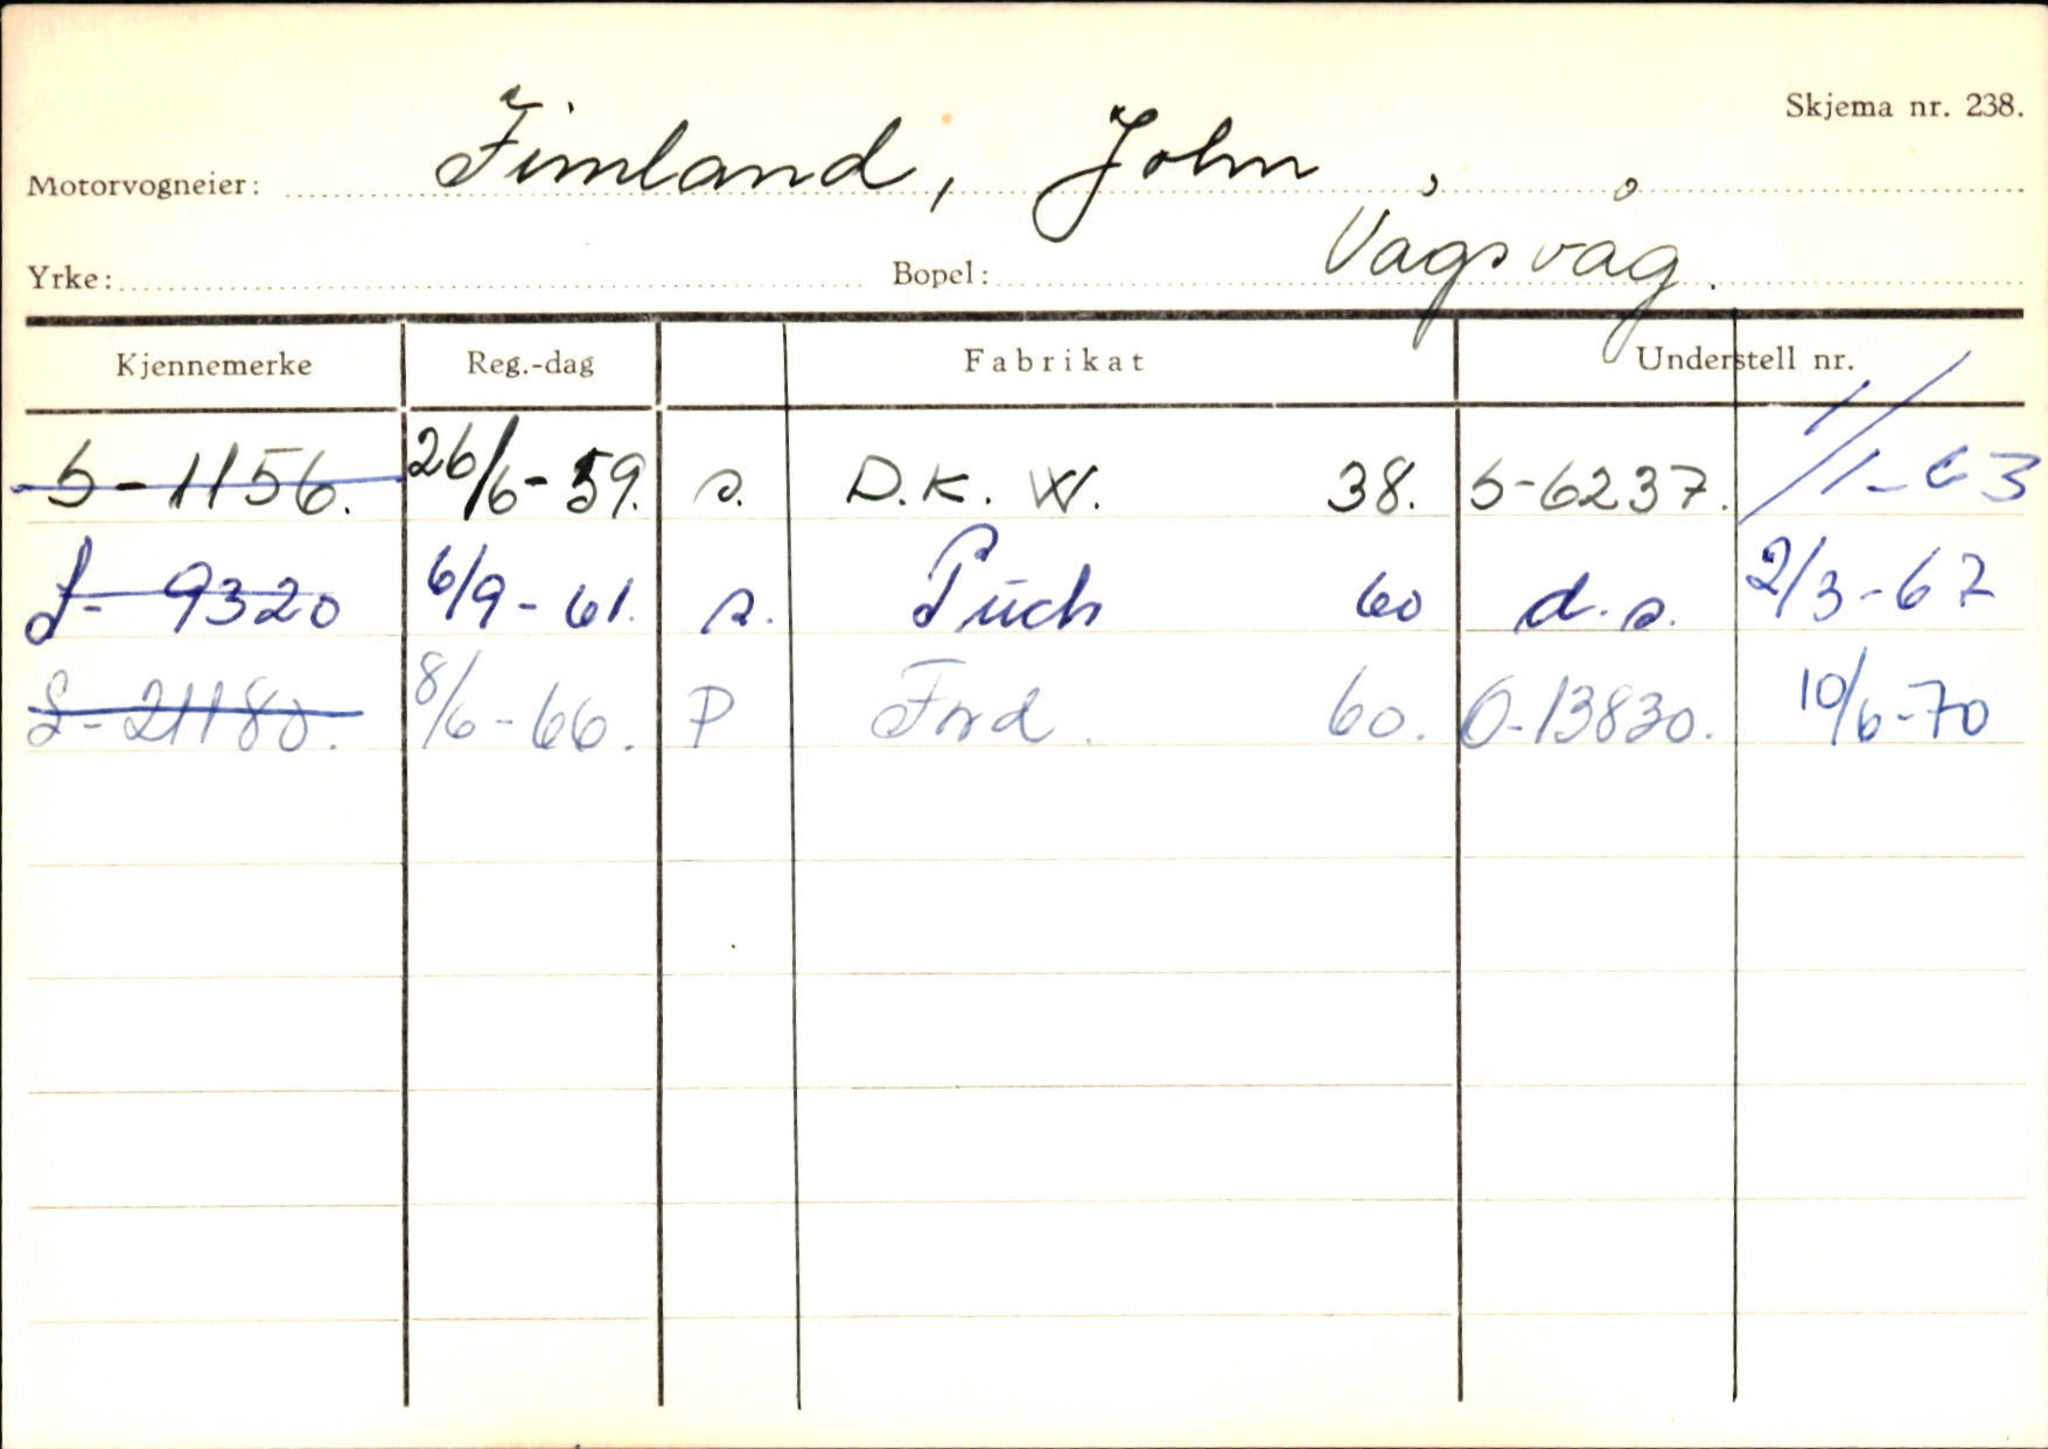 Skjema nr. 238.
Motorvogneier: Fimland, John,
Yrke: Bopel: Vågsvåg.
Kjennemerke Reg.-dag Fabrikat Understell nr.
S-1156. 26/6-59. s. D.K.W. 38. S-6237. 1/1-63
S-9320 6/9-61. s. Puch 60 d.s. 2/3-67
S-21180. 8/6-66. P Ford. 60. O-13830. 10/6-70